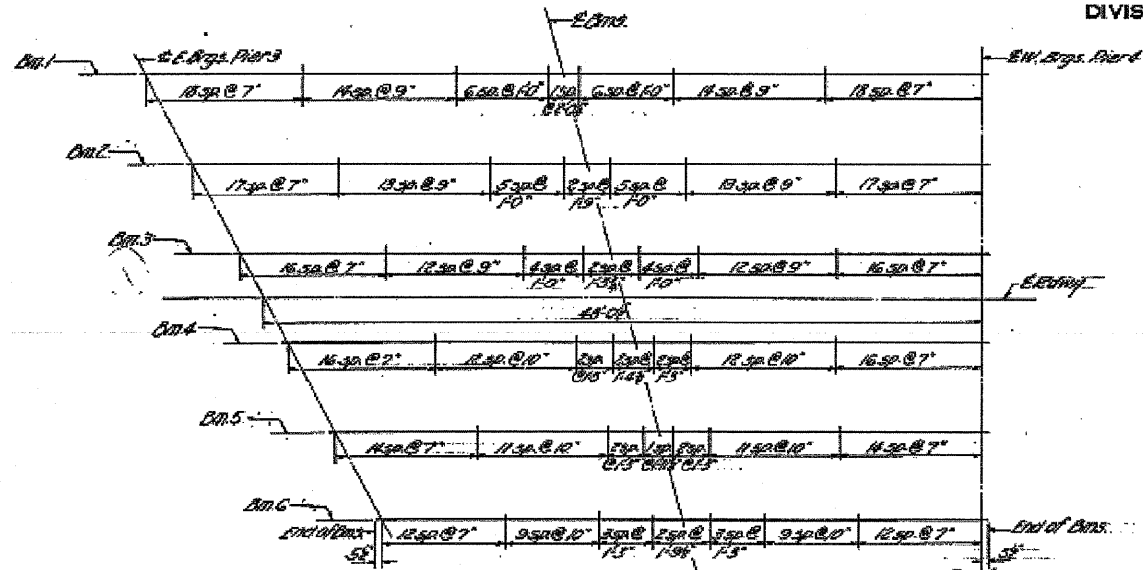 DIVIS
Bm.1
℄ E. Brgs. Pier 3
℄ Bms.
℄ W. Brgs. Pier 4
18 sp. @ 7"
14 sp. @ 9"
6 sp. @ 1'-0"
1 sp.
6 sp. @ 1'-0"
14 sp. @ 9"
18 sp. @ 7"
Bm.2
17 sp. @ 7"
13 sp. @ 9"
5 sp. @
1'-0"
2 sp. @
1'-9"
5 sp. @
1'-0"
13 sp. @ 9"
17 sp. @ 7"
Bm.3
16 sp. @ 7"
12 sp. @ 9"
4 sp. @
1'-0"
2 sp. @
4 sp. @
1'-0"
12 sp. @ 9"
16 sp. @ 7"
℄ Rdwy.
Bm.4
16 sp. @ 7"
12 sp. @ 10"
2 sp.
@ 1'-3"
2 sp. @
2 sp. @
1'-3"
12 sp. @ 10"
16 sp. @ 7"
Bm.5
14 sp. @ 7"
11 sp. @ 10"
2 sp.
@ 1'-3"
1 sp.
2 sp.
@ 1'-3"
11 sp. @ 10"
14 sp. @ 7"
Bm.6
End of Bms.
12 sp. @ 7"
9 sp. @ 10"
3 sp. @
1'-3"
2 sp. @
3 sp. @
1'-3"
9 sp. @ 10"
12 sp. @ 7"
End of Bms.